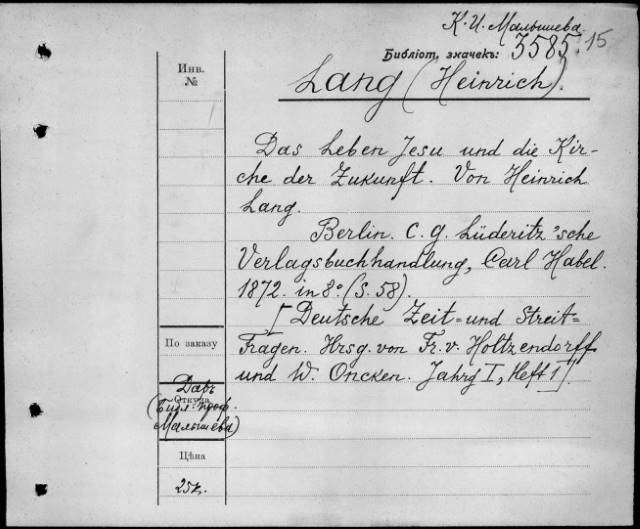 К. И. Малышева.
Библіот. значекъ: 3585.15
Инв.
№
Lang (Heinrich).
Das Leben Jesu und die Kir-
che der Zukunft. Von Heinrich
Lang.
Berlin. C. G. Lüderitz'sche
Verlagsbuchhandlung, Carl Habel.
1872. in 8º (S. 58).
[Deutsche Zeit= und Streit=
Fragen. Hrsg. von Fr. v. Holtzendorff
und W. Oncken. Jahrg I, Heft 1].
По заказу
Даръ
Откуда
(Библ. проф.
Малышева)
Цѣна
25к.